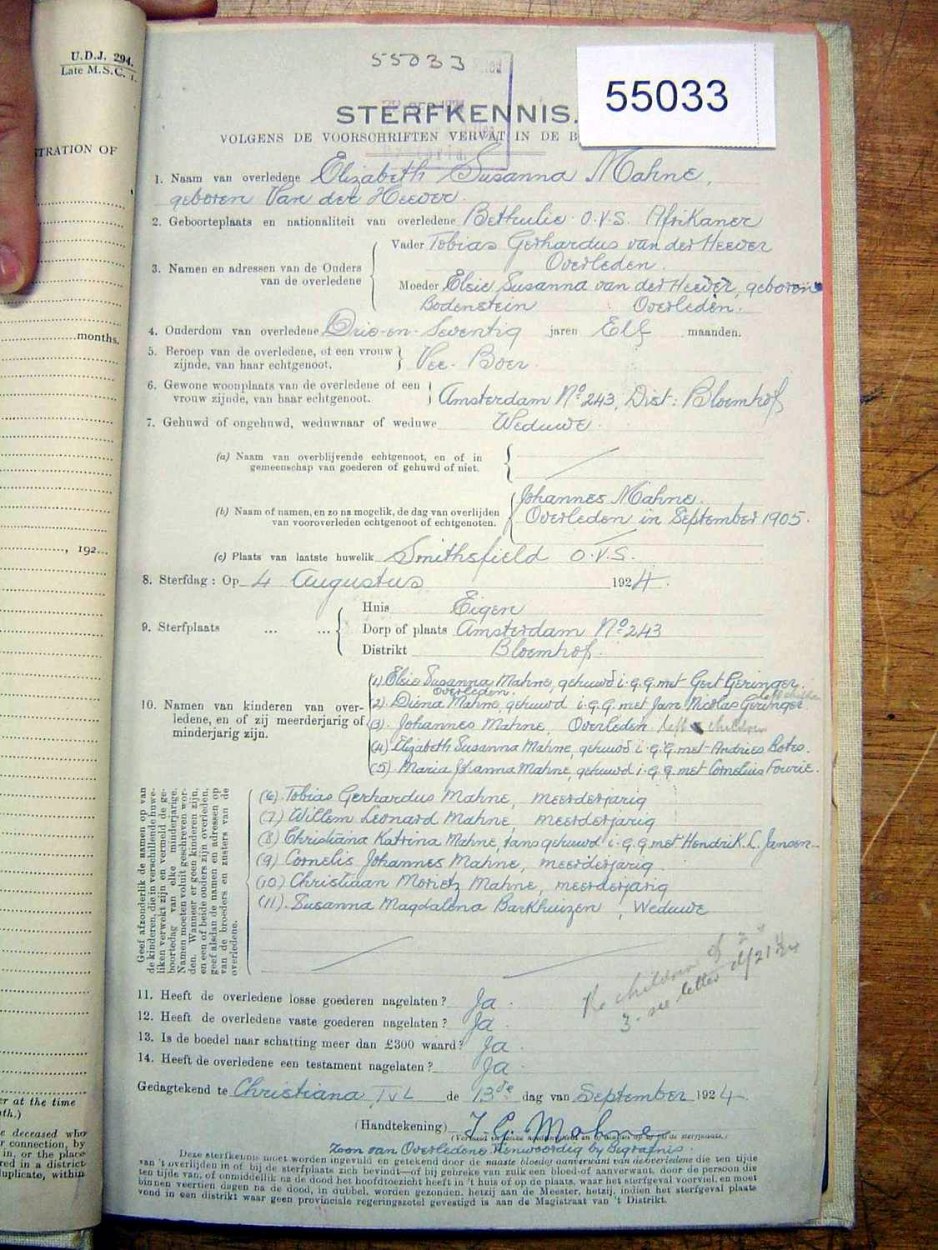 U.D.J. 294.
Late M.S.C. 1.
STRATION OF
months.
, 192...
er at the time
th.)
e deceased who
r connection, by
in, or the place
red in a district
luplicate, within
55033
55033
STERFKENNIS.
VOLGENS DE VOORSCHRIFTEN VERVAT IN DE B
1. Naam van overledene Elizabeth Susanna Mahne,
geboren Van der Heever.
2. Geboorteplaats en nationaliteit van overledene Bethulie O.V.S. Afrikaner
3. Namen en adressen van de Ouders van de overledene
Vader Tobias Gerhardus van der Heever
Overleden.
Moeder Elsie Susanna van der Heever, geboren
Bodenstein Overleden.
4. Onderdom van overledene Drie-en-Seventig jaren Elf maanden.
5. Beroep van de overledene, of een vrouw zijnde, van haar echtgenoot. Vee-Boer.
6. Gewone woonplaats van de overledene of een vrouw zijnde, van haar echtgenoot. Amsterdam No 243, Dist: Bloemhof
7. Gehuwd of ongehuwd, weduwnaar of weduwe Weduwe.
(a) Naam van overblijvende echtgenoot, en of in gemeenschap van goederen of gehuwd of niet.
(b) Naam of namen, en zo na mogelik, de dag van overlijden van vooroverleden echtgenoot of echtgenoten.
Johannes Mahne.
Overleden in September 1905.
(c) Plaats van laatste huwelik Smithsfield O.V.S.
8. Sterfdag: Op 4 Augustus 1924.
9. Sterfplaats ... ...
Huis Eigen
Dorp of plaats Amsterdam No 243
Distrikt Bloemhof.
10. Namen van kinderen van overledene, en of zij meerderjarig of minderjarig zijn.
(1) Elsie Susanna Mahne, gehuwd i.g.g. met Gert Geringer.
Overleden. left children
(2) Diena Mahne, gehuwd i.g.g. met Jan Nicolas Geringer
(3) Johannes Mahne, Overleden left children
(4) Elizabeth Susanna Mahne, gehuwd i.g.g. met Andries Botes.
(5) Maria Johanna Mahne, gehuwd i.g.g. met Cornelius Fourie.
Geef afzonderlik de namen op van de kinderen, die in verschillende huweliken verwekt zijn en vermeld de geboortedag van elke minderjarige. Namen moeten voluit geschreven worden. Wanneer er geen kinderen zijn, en een of beide ouders zijn overleden, geef alsdan de namen en adressen op van de broeders en zusters van de overledene.
(6) Tobias Gerhardus Mahne, meerderjarig
(7) Willem Leonard Mahne meerderjarig
(8) Christiana Katrina Mahne, tans gehuwd i.g.g. met Hendrik L. Jansen
(9) Cornelis Johannes Mahne, meerderjarig.
(10) Christiaan Morietz Mahne, meerderjarig
(11). Susanna Magdalena Barkhuizen, Weduwe
Re children of 2 &
3. see letter
11. Heeft de overledene losse goederen nagelaten? Ja.
12. Heeft de overledene vaste goederen nagelaten? Ja.
13. Is de boedel naar schatting meer dan £300 waard? Ja.
14. Heeft de overledene een testament nagelaten? Ja.
Gedagtekend te Christiana Tvl de 13de dag van September 1924.
(Handtekening) T. G. Mahne
Zoon van Overledene tenwoordig by begrafnis.
Deze sterfkennis moet worden ingevuld en getekend door de naaste bloedverwant of aanverwant van de overledene die ten tijde
van 't overlijden in of bij de sterfplaats zich bevindt—of bij gebreke van zulk een bloed-of aanverwant, door de persoon die
ten tijde van, of onmiddellik na de dood het hoofdtoezicht heeft in 't huis of op de plaats, waar het sterfgeval voorviel, en moet
binnen veertien dagen na de dood, in dubbel, worden gezonden, hetzij aan de Meester, hetzij, indien het sterfgeval plaats
vond in een distrikt waar geen provinciale regeringszetel gevestigd is aan de Magistraat van 't Distrikt.